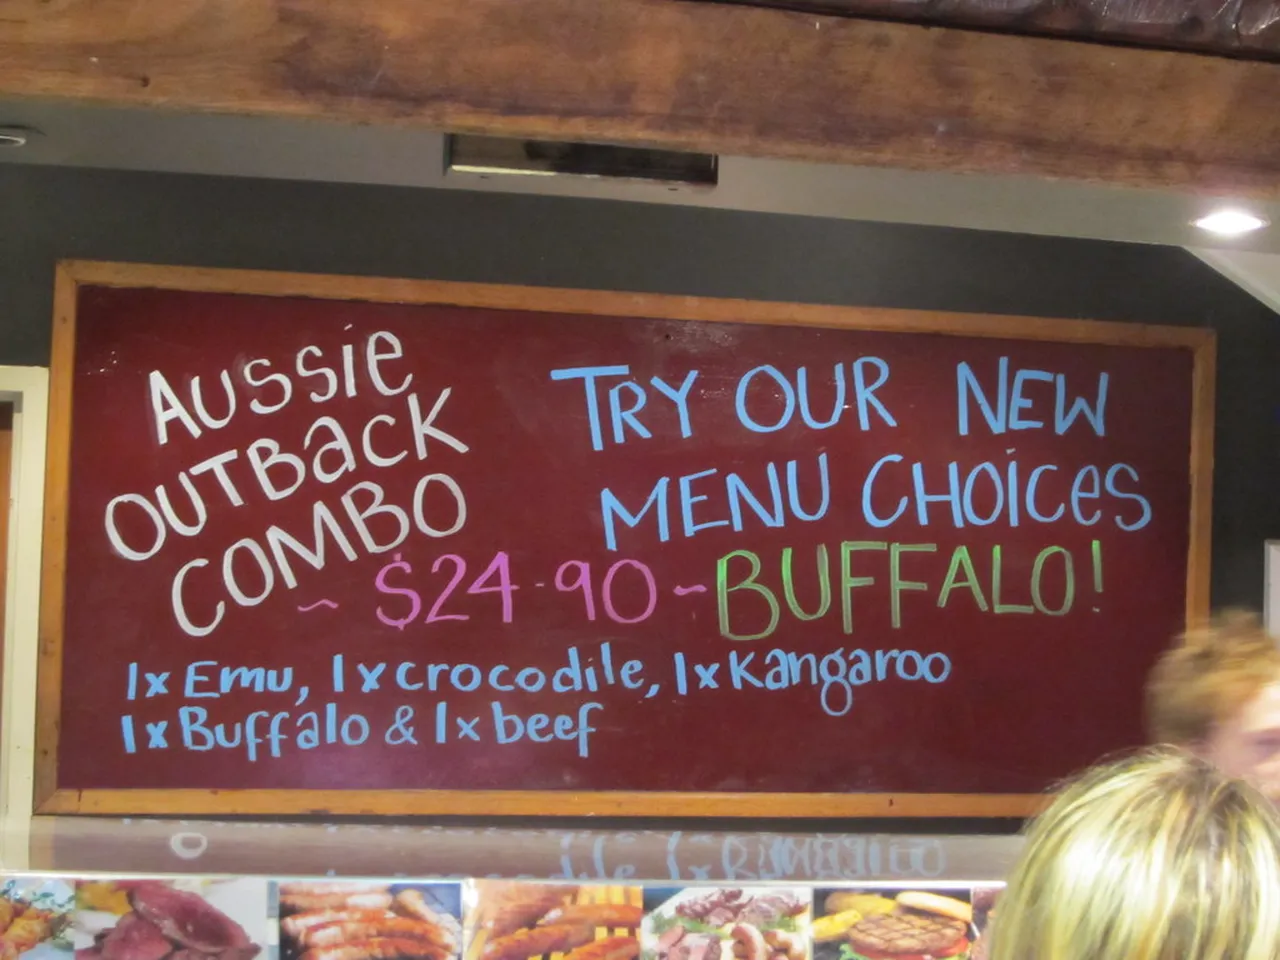 AUSSiE
OUTBacK
COMBO
~ $24-90 ~
TRY OUR NEW
MENU CHOiCeS
BUFFALO!
1x Emu, 1x crocodile, 1x Kangaroo
1x Buffalo & 1x beef